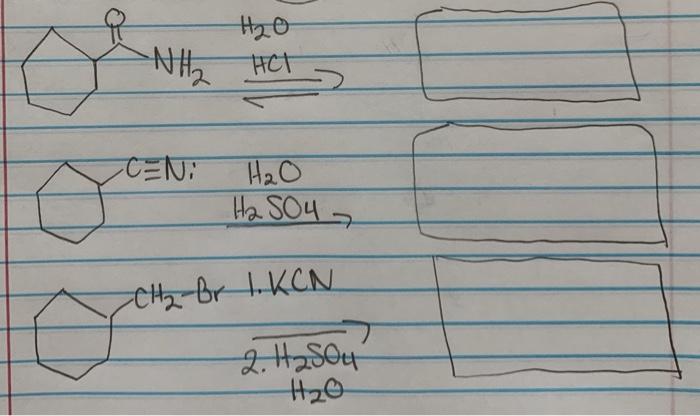 O
NH₂
H₂O
HCl
C≡N:
H₂O
H₂SO₄
CH₂-Br
1. KCN
2. H₂SO₄
H₂O